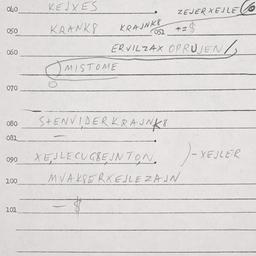 040 KEJXES . ZEJERXEJLE
050 KRANK8 KRAJNK8 052 +=$
060 ERVILZAX OPRUJEN
MISTOME
070
080 S+ENVIDERKRAJNK8
081 —
090 XEJLECUGBEJNTON )-XEJLER
100 MVAK8ERXEJLEZAJN
101 — $